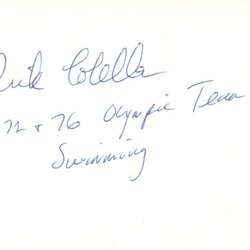 Rick Colella
72 & 76 Olympic Team
Swimming